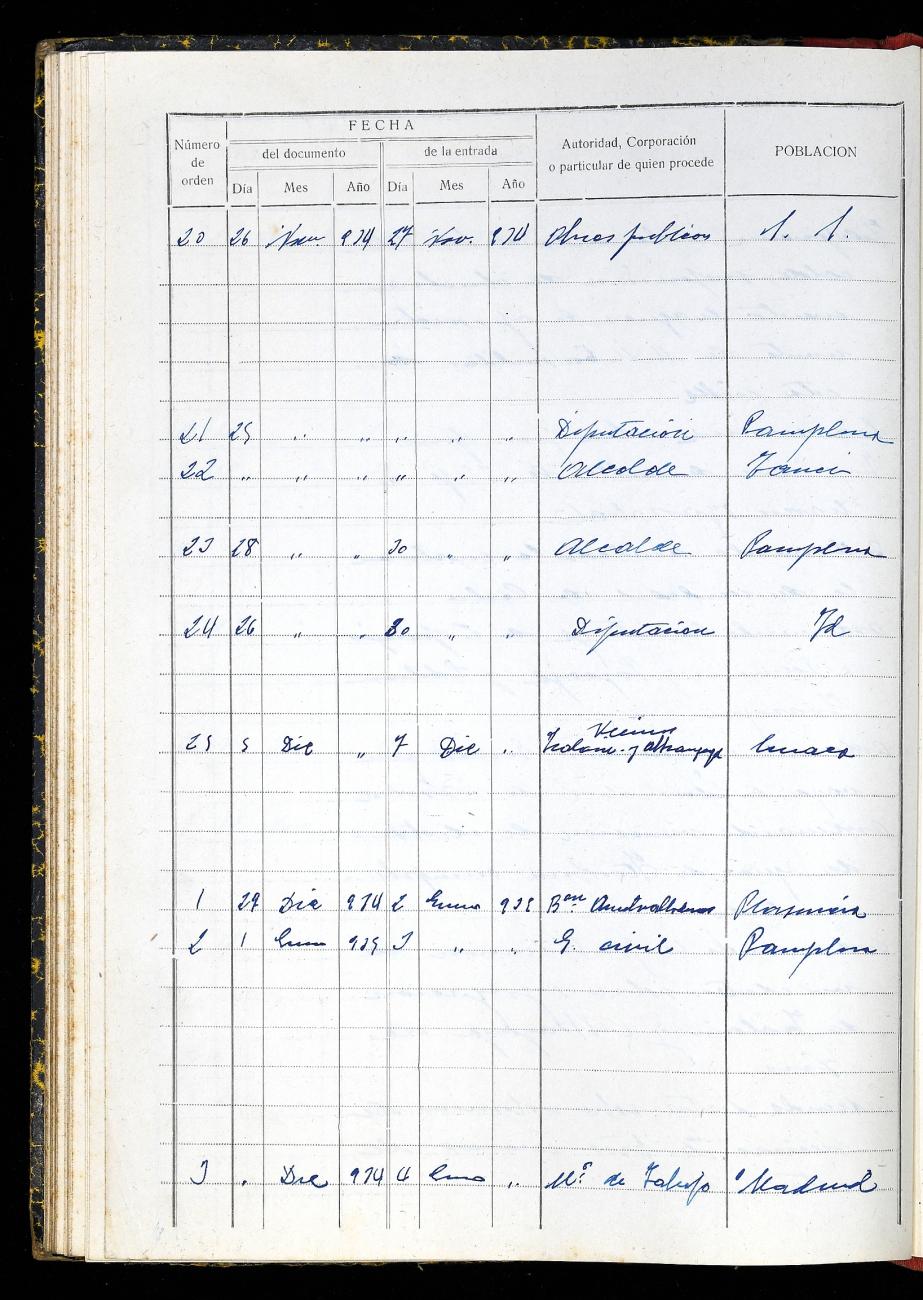 FECHA
Número de orden
del documento
de la entrada
Autoridad, Corporación o particular de quien procede
POBLACION
Día Mes Año Día Mes Año
20 26 Nov 934 27 Nov. 934 Obras publicas S. S.
21 25 " " " " " Diputación Pamplona
22 " " " " " " Alcalde Yanci
23 28 " " 30 " " Alcalde Pamplona
24 26 " " 30 " " Diputacion Id
Vecinos
25 5 Dic " 7 Dic "
1 29 Dic 934 2 Enero 935 Bon Plasencia
2 1 Enero 935 3 " " G. civil Pamplona
3 " Dic 934 4 Enero " Mº de Trabajo Madrid